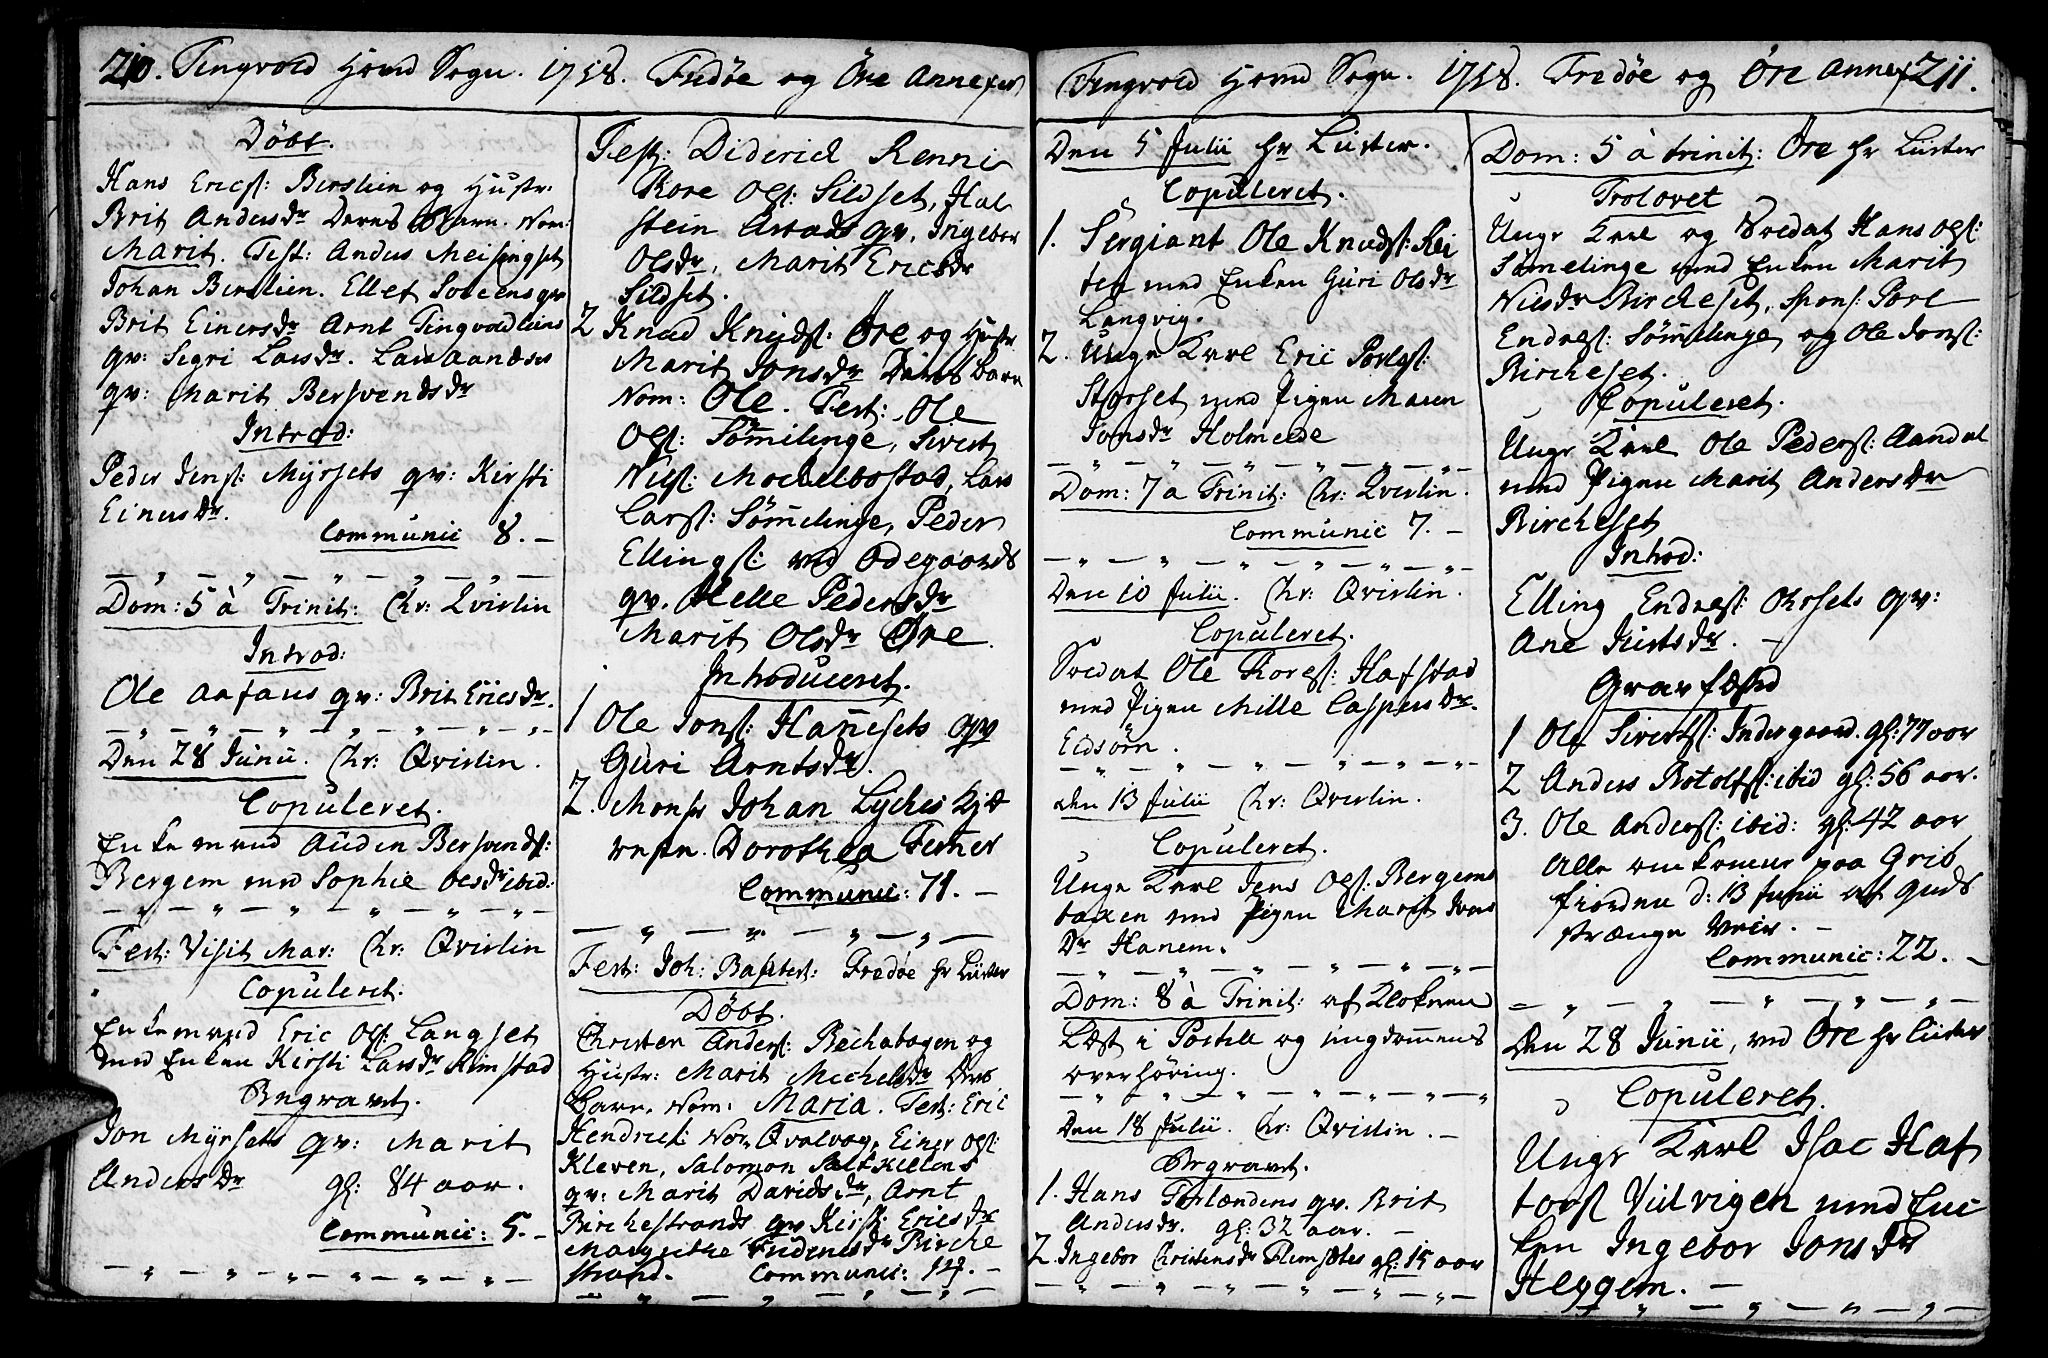 210. Tingvold Hoved Sogn. 1758. Fredøe og Öre Annexer
Døbt.
Hans Erics: Berslien og Hustr:
Brit Andersdr Deres Barn. Nom:
Marit. Test: Anders Meisingset
Johan Berslien. Ellet qv:
Brit Einersdr Arnt Tingvoldliens
qv: Segri Larsdr. Lars Aandses
qv: Marit Bersvendsdr
Introd:
Peder Jens: Myrsets qv: Kirsti
Einersdr.
Communic 8. –
Dom: 5 à Trinit: Chr: Qvislin
Introd:
Ole Aafaus qv: Brit Ericsdr.
Den 28 Junii. Chr: Qvislin.
Copuleret.
Enkemand Auden Bersvends:
Bergem med Sophie Olsdr ibid:
Fest: Visit Mar: Chr: Qvislin
Copuleret:
Enkemand Eric Ols: Langset
med Enken Kirsti Larsdr Rimstad
Begravet.
Jon Myrsets qv: Marit
Andersdr gl: 84 aar.
Communic: 5. –
Test: Diderich Renni
Kore Ols: Sildset, Hal
stein Arsads qv. Ingebor
Olsdr, Marit Ericsdr
Sildset.
2 Knud Knuds: Öre og Hustr
Marit Jonsdr Deres Barn
Nom: Ole. Test: Ole
Ols: Sömelinge, Sivert
Nils: Mochelbostad, Lars
Lars: Sömelinge, Peder
Ellings: ved Odegaards
qv. Pedersdr
Marit Olsdr Øre.
Introduceret.
1 Ole Jons: Hanesets qv
Guri Arntsdr.
2. Monsr Johan Lyches Kjæ
reste. Dorothea Ferner
Communic: 71. –
Fest: Joh: Baptist: Fredøe Hr Lüster
Døbt.
Christen Anders: Bechabogen og
Hustr: Marit Michelsdr Ders
Barn. Nom: Maria. Test: Eric
Hendrics: Qvalvog, Einer Ols:
Kleven, Salomon
qv: Marit Davidsdr, Arnt
Birchestrands qv Kirst: Ericsdr
Margrethe Birche
strand. Communic:
Tingvold Hoved Sogn. 1758. Fredøe og Öre Annex 211.
Den 5 Julii Hr Lüster.
Copuleret.
1. Sergiant Ole Knuds: Rei
ten med Enken Guri Olsdr
Langvig.
2. Unge Karl Eric Povls:
Storset med Pigen Maren
Jonsdr Holmeide
Dom: 7 à Trinit: Chr: Qvislin.
Communic 7. –
Den 10 Julii. Chr: Qvislin.
Copuleret.
Soldat Ole Kores: Hafstad
med Pigen Mille Caspersdr.
Eidsörn.
Den 13 Julii Chr: Qvislin.
Copuleret.
Unge Karl Jens Ols: Bergems
backen med Pigen Marit Ivers
Dr Hanem.
Dom: 8 à Trinit: af Klokeren
Læst i Postill og ungdommens
overhöring.
Den 18 Julii. Chr: Qvislin. –
Begravet.
1. Hans Torlændens qv. Brit
Andersdr. gl: 32 aar. –
2. Ingebor Christensdr gl: 15 aar
Dom: 5 à trinit: Öre Hr Lüster
Trolovet
Unge Karl og Soldat Hans Ols:
Sömelinge med Enken Marit
Nilsdr Bircheset, Spons: Pove
Endres: Sömelinge og Ole Jons:
Bircheset.
Copuleret.
Unge Karl Ole Peders: Aandal
med Pigen Marit Andersdr
Bircheset
Introd:
Elling Endres: Ohrsets qv:
Ane Siursdr. –
Gravfæsted
1 Ole Siverts: Indergaard. gl: 77 aar
2 Anders Botolfs: ibid gl: 56 aar.
3. Ole Anders: ibid: gl: 42 aar
Alle omkomne paa Grib
fiorden d: 13 Junii af Guds
strænge Veir. –
Communic: 22. –
Den 28 Junii, ved Öre Hr Lüster
Copuleret.
Unge Karl Isac Haf
tors Vulvigen med En
ken Ingebor Jonsdr
Heggem. –